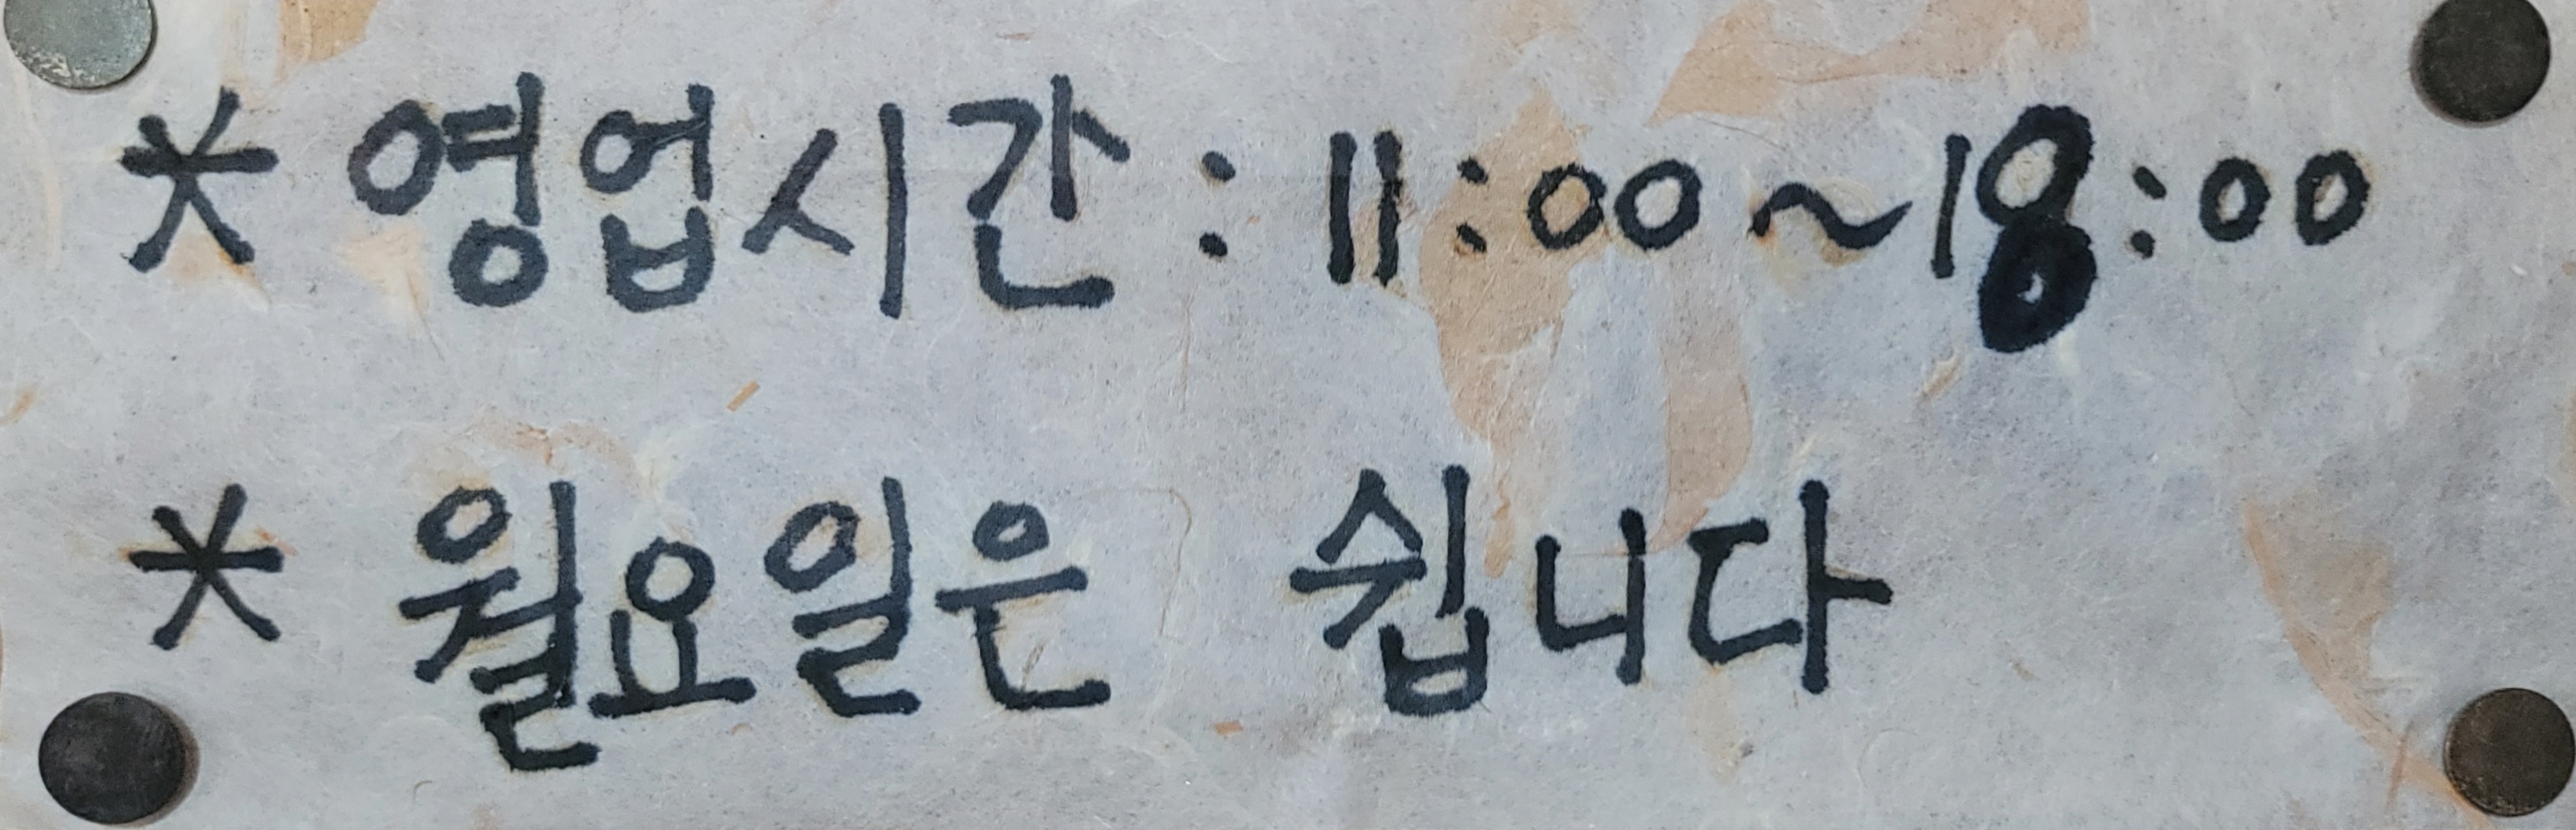 * 영업시간 : 11:00~18:00
* 월요일은 쉽니다